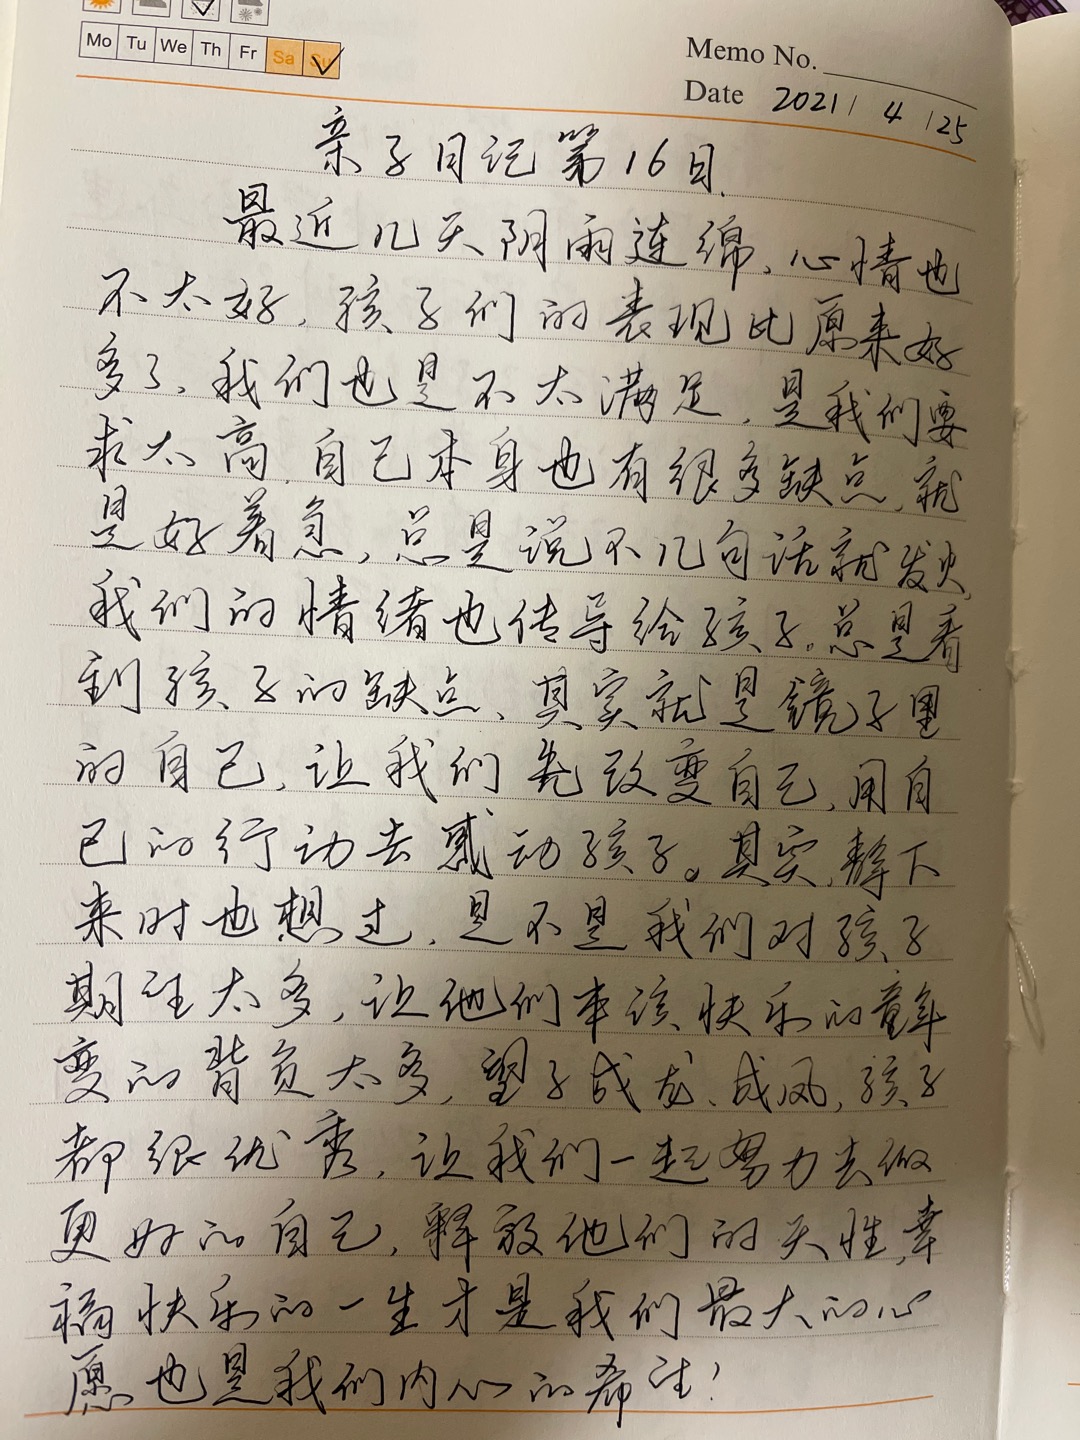 Mo Tu We Th Fr Sa Su
Memo No.
Date 2021/4/25
亲子日记第16日.
最近几天阴雨连绵、心情也
不太好，孩子们的表现比原来好
多了、我们也是不太满足，是我们要
求太高，自己本身也有很多缺点，就
是好着急，总是说不几句话就发火，
我们的情绪也传导给孩子。总是看
到孩子的缺点、其实就是镜子里
的自己，让我们先改变自己，用自
己的行动去感动孩子。其实，静下
来时也想过，是不是我们对孩子
期望太多，让他们本该快乐的童年
变的背负太多，望子成龙、成凤，孩子
都很优秀，让我们一起努力去做
更好的自己，释放他们的天性，幸
福快乐的一生才是我们最大的心
愿也是我们内心的希望！